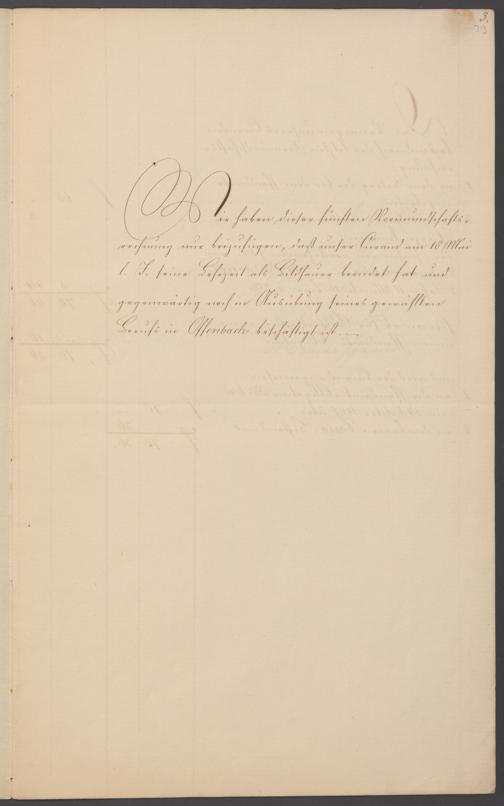 3.
Wir haben dieser fünften Vormundschafts-
rechnung nur beizufügen, daß unser Curand am 18 Mai
l. J. seine Lehrzeit als Bildhauer beendet hat und
gegenwärtig noch in Ausübung seines gewählten
Berufs in Offenbach beschäftigt ist.